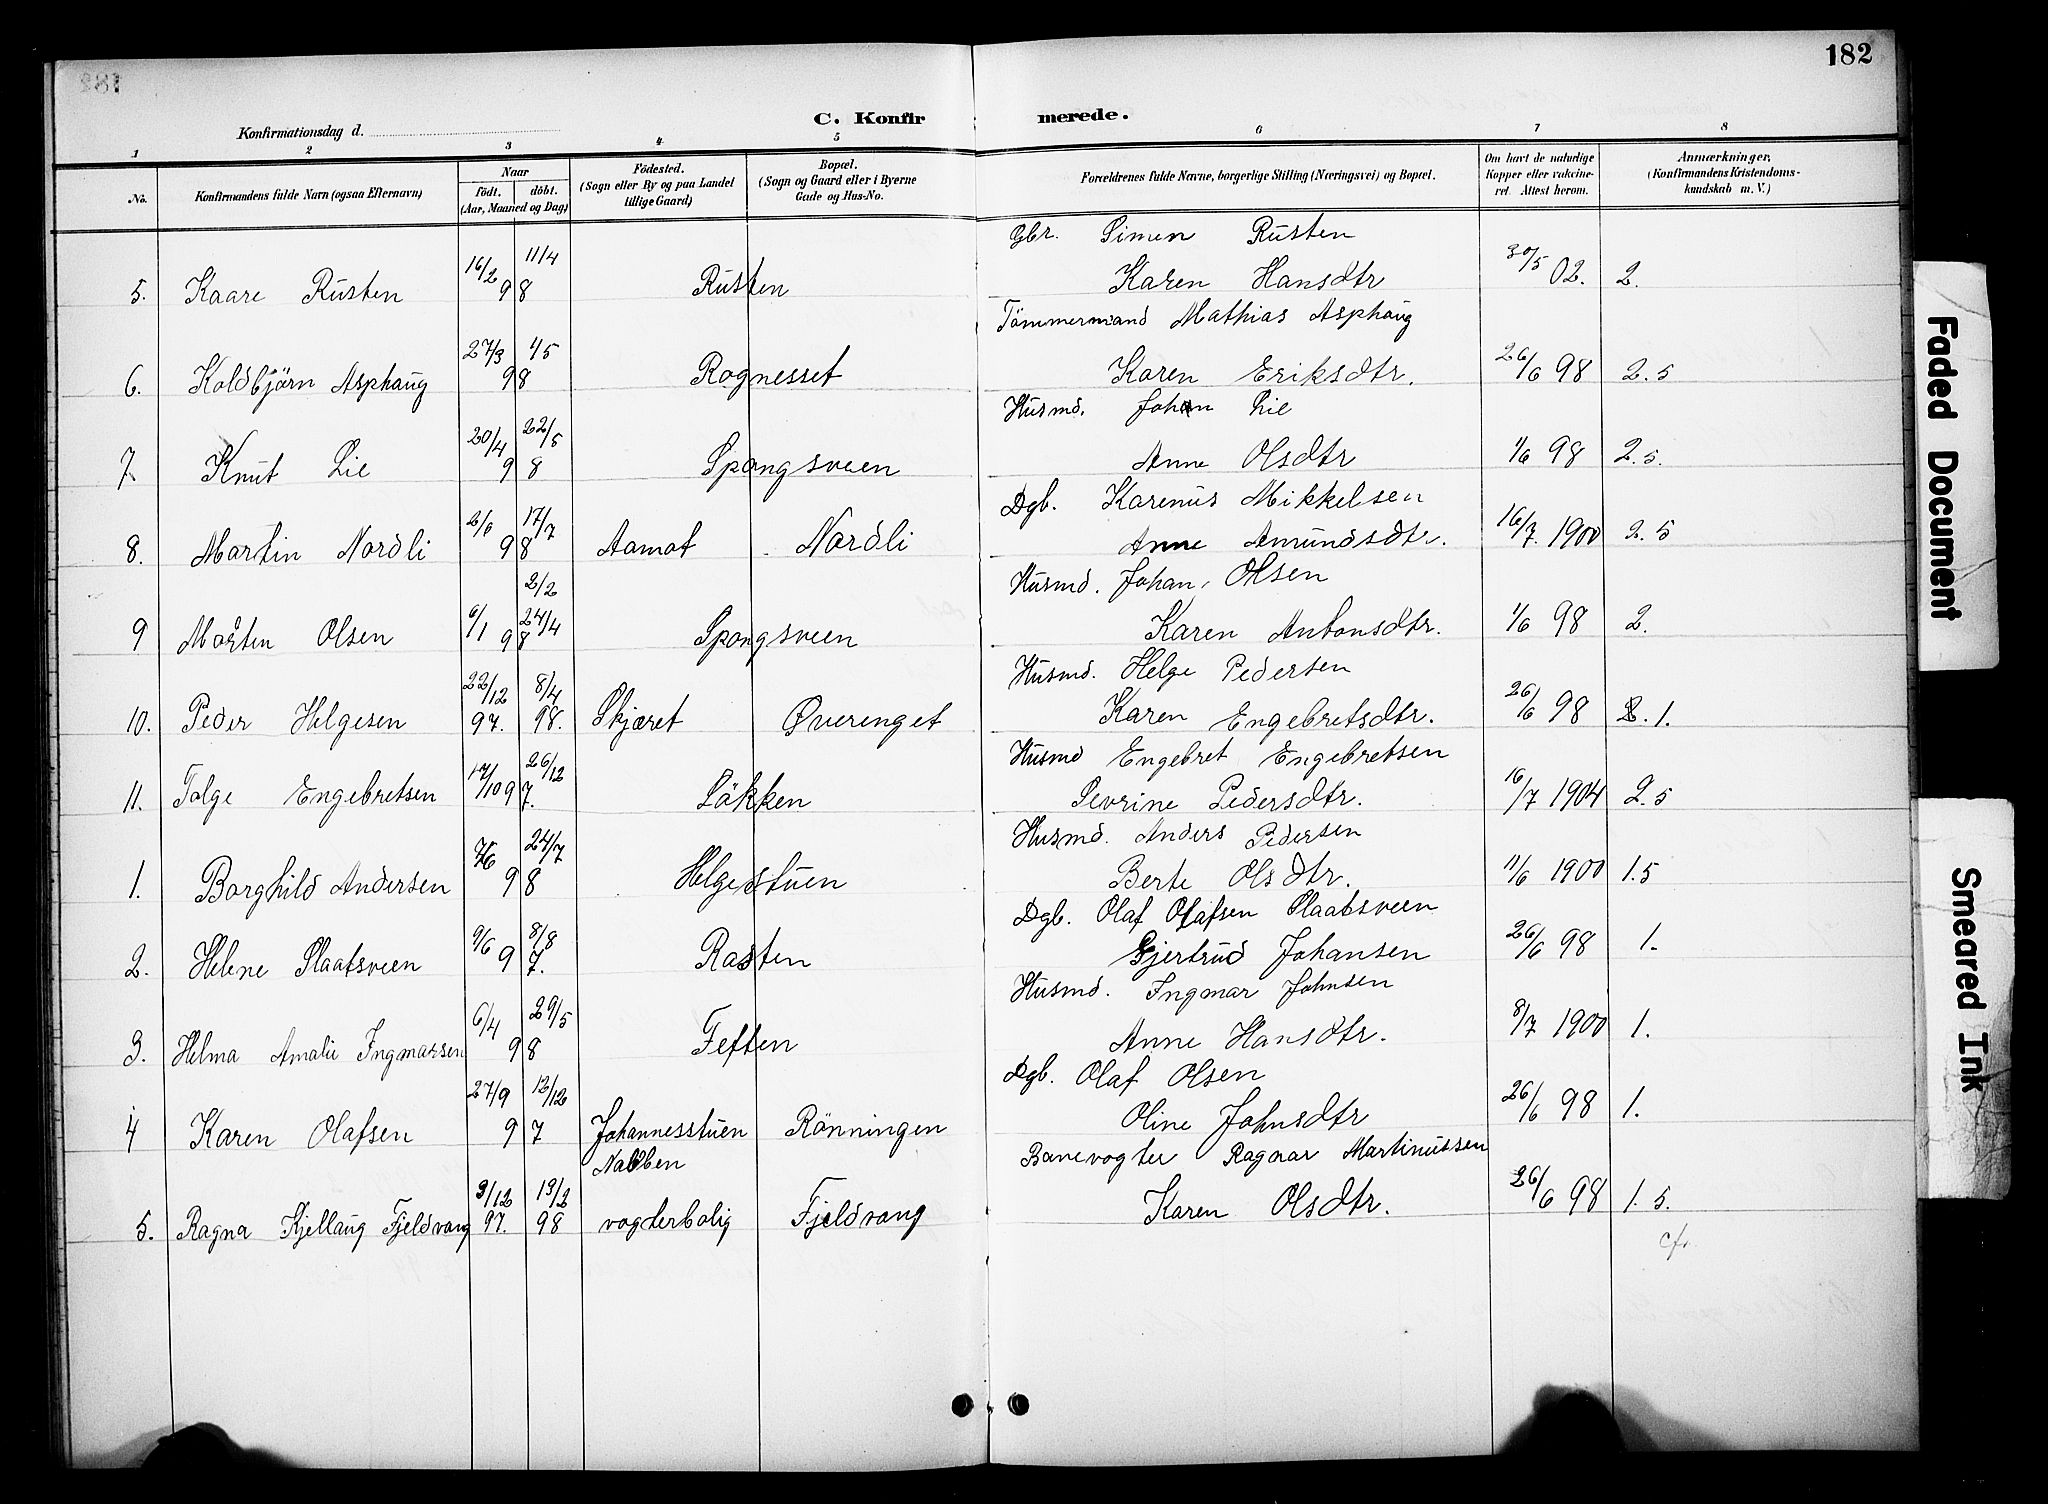 182
C. Konfirmerede.
Konfirmationsdag d.
1 2 3 4 5 6 7 8
No. Konfirmandens fulde Navn (ogsaa Efternavn) Naar födt. döbt. (Aar, Maaned og Dag) Födested. (Sogn eller By og paa Landet tillige Gaard) Bopæl. (Sogn og Gaard eller i Byerne Gade og Hus-No. Forældrenes fulde Navne, borgerlige Stilling (Næringsvei) og Bopæl. Om havt de naturlige Kopper eller vakcineret. Attest herom. Anmærkninger, (Konfirmandens Kristendomskundskab m. V.)
Gbr. Simen Rusten
5. Kaare Rusten 16/2 98 11/4 Rusten Karen Hansdtr 30/5 02. 2.
Tömmermand Mathias Asphaug
6. Koldbjörn Asphaug 27/3 98 Rognesset Karen Eriksdtr. 26/6 98 2.5
Husmd. Johan Lie
7. Knut Lie 20/4 22/5 98 Spongsveen Anne Olsdtr 1/6 98 2.5.
Dgb. Karenus Mikkelsen
8. Martin Nordli 2/6 17/7 98 Aamot Nordli Anne Amundsdtr. 16/7. 1900 2.5
2/2
Husmd. Johan Olsen
9 Morten Olsen 6/1 24/4 98 Spongsveen Karen Antonsdtr. 1/6 98 2.
Husmd. Helge Pedersen
10. Peder Helgesen 22/12 97. 8/4 98. Skjæret Överenget Karen Engebretsdtr. 26/6 98 1.
Husmd Engebret Engebretsen
11. Tolge Engebretsen 17/10 26/12 97. Lökken Sevrine Pedersdtr. 16/7 1904 2.5
Husmd. Anders Pedersen
1. Borghild Andersen 24/7 98 Helgestuen Berte Olsdtr. 11/6 1900 1.5
Dgb. Olaf Olafsen Slaatsveen
2. Helene Slaatsveen 9/6 8/8 97. Rasten Gjertrud Johansen 26/6 98 1.
Husmd. Ingmar Johnsen
3. Helma Amalie Ingmarsen 6/4 29/5 98 Feften Anne Hansdtr. 8/7 1900 1.
Dgb. Olaf Olsen
4 Karen Olafsen 27/9 12/12 97 Johannesstuen Rönningen Oline Johnsdtr 26/6 98 1.
Banevogter Ragnar Martinussen
5. Ragna Kjellaug Fjeldvang 3/12 97. 13/2 98 vogterbolig Fjeldvang Karen Olsdtr. 26/6 98 1.5.
Faded Document
Smeared Ink